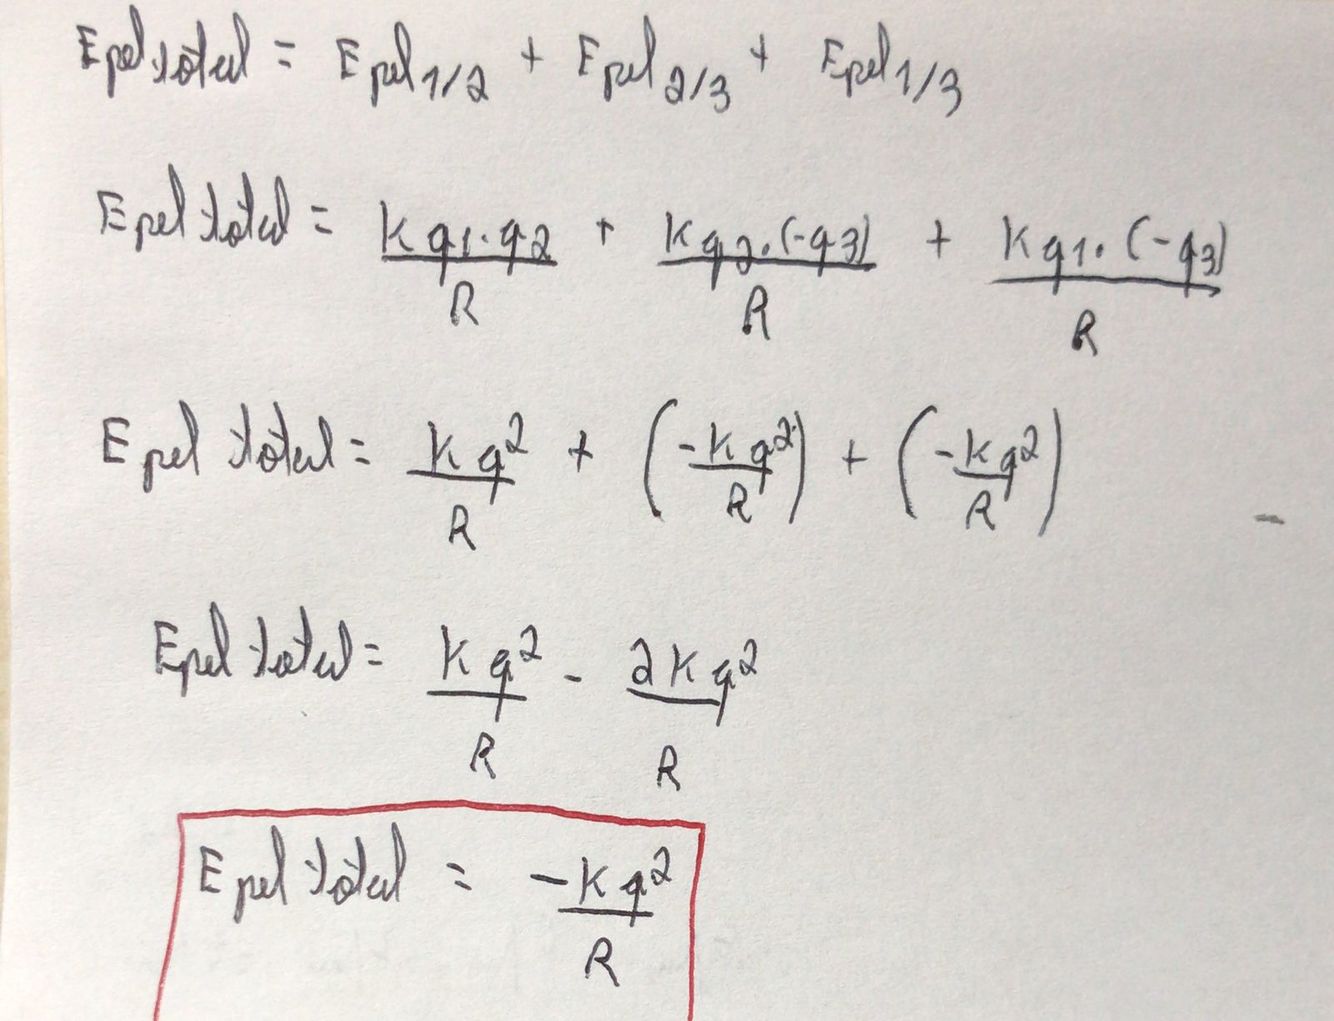 Epel total = Epel 1/2 + Epel 2/3 + Epel 1/3
Epel total = K q1 . q2 / R + K q2 . (-q3) / R + K q1 . (-q3) / R
Epel total = K q² / R + (-K q² / R) + (-K q² / R)
Epel total = K q² / R - 2 K q² / R
Epel total = -K q² / R